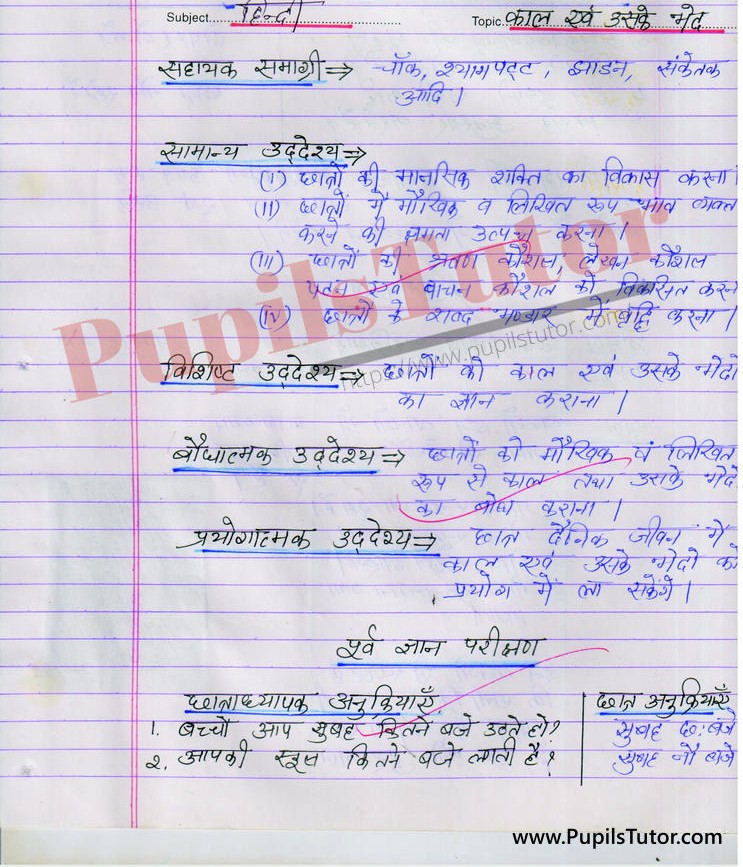 Subject हिन्दी Topic काल एवं उसके भेद
सहायक समाग्री ⇒ चॉक, श्यामपट्ट, झाडन, संकेतक
आदि।
सामान्य उद्देश्य ⇒
(I) छात्रों की मानसिक शक्ति का विकास करना।
(II) छात्रों में मौखिक व लिखित रूप भाव व्यक्त
करने की क्षमता उत्पन्न करना।
(III) छात्रों की श्रवण कौशल, लेखन कौशल
पठन एवं वाचन कौशल को विकसित करना
(IV) छात्रों के शब्द भण्डार में वृद्धि करना।
PupilsTutor
https://www.pupilstutor.com
विशिष्ट उद्देश्य ⇒ छात्रों को काल एवं उसके भेदों
का ज्ञान कराना।
बौधात्मक उद्देश्य ⇒ छात्रों को मौखिक वं लिखित
रूप से काल तथा उसके भेदों
का बोध कराना।
प्रयोगात्मक उद्देश्य ⇒ छात्र दैनिक जीवन में
काल एवं उसके भेदों को
प्रयोग में ला सकेंगे।
पूर्व ज्ञान परीक्षण
छात्राध्यापक अनुक्रियाएँ छात्र अनुक्रियाएँ
1. बच्चों आप सुबह कितने बजे उठते हो? सुबह छः बजे
2. आपकी स्कूल कितने बजे लगती है? सुबह नौ बजे
www.PupilsTutor.com